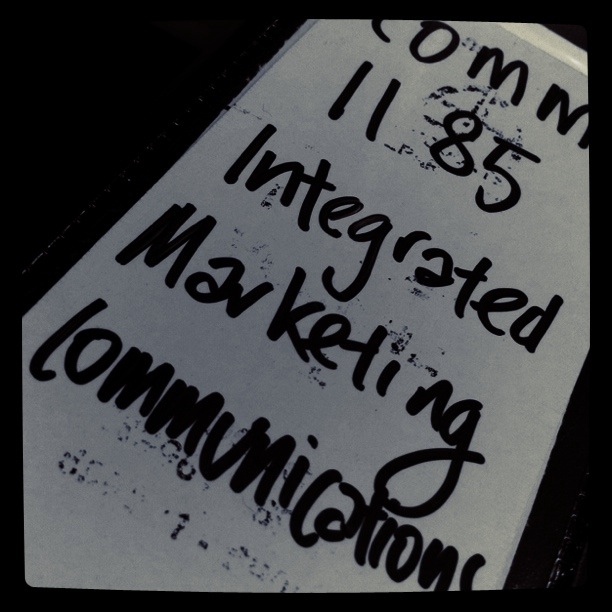 Comm
1185
Integrated
Marketing
Communications